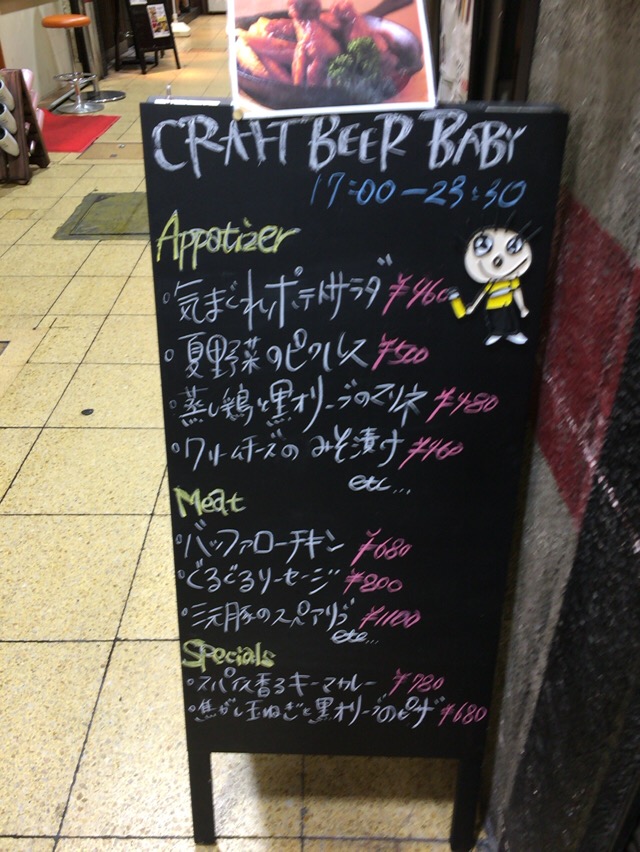 CRAFT BEER BABY
17:00-23:30
Appotizer
気まぐれポテトサラダ ¥460
夏野菜のピクルス ¥500
蒸し鶏と黒オリーブのマリネ ¥480
クリームチーズのみそ漬け ¥460
etc...
Meat
バッファローチキン ¥680
ぐるぐるソーセージ ¥800
三元豚のスペアリブ ¥1100
etc...
Specials
スパイス香るキーマカレー ¥780
焦がし玉ねぎと黒オリーブのピザ ¥680